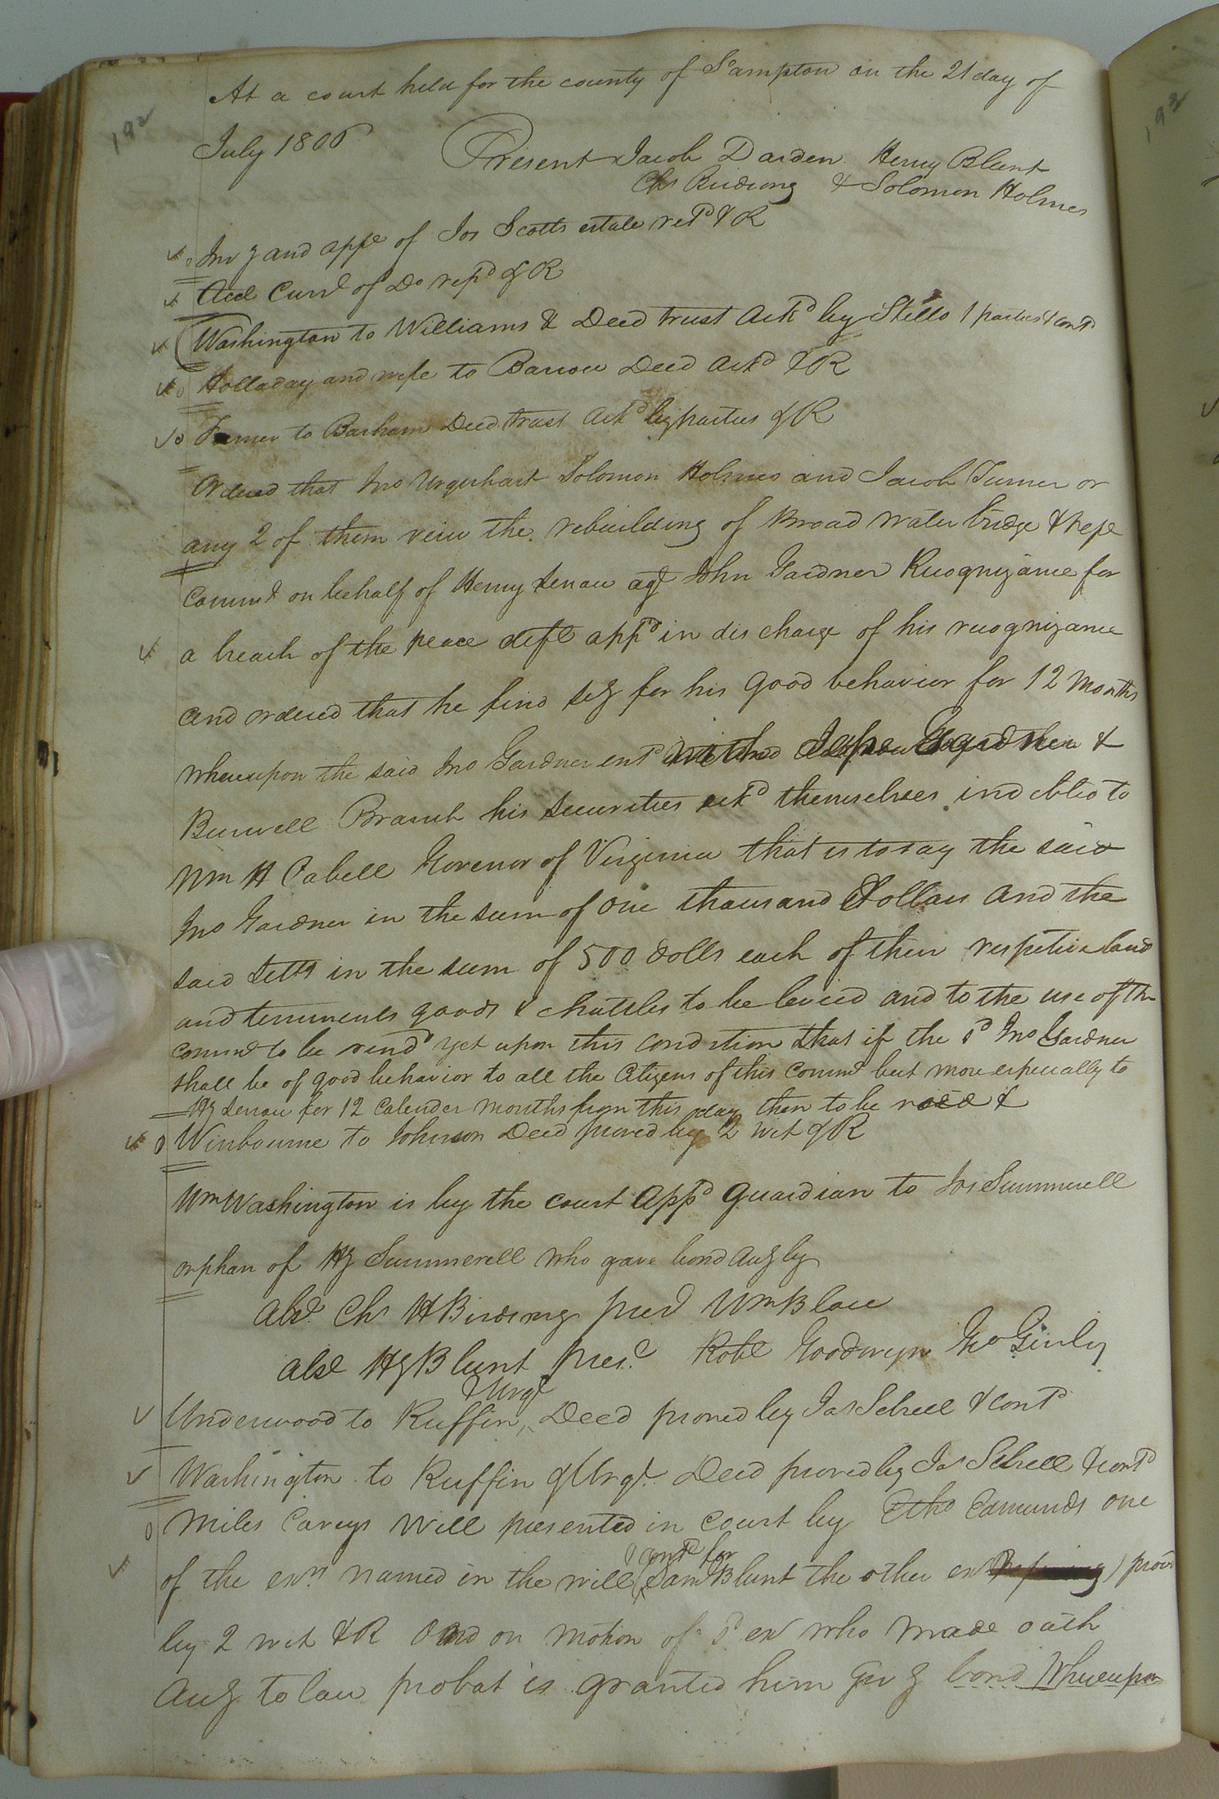 192
At a court held for the county of Sampton on the 21 day of
July 1806 Present Jacob Darden Henry Blunt
Chs Birdsong & Solomon Holmes
Inv y and appt of Jos Scotts estate retd & R
Acct Currt of Do retd & R
Washington to Williams & Deed trust Ackd by Stello 1 parties & contd
Holladay and wife to Barrow Deed Ackd & R
Turner to Barham Deed trust Ackd by parties & R
Ordered that Jno Urquhart Solomon Holmes and Jacob Turner or
any 2 of them veiw the rebuilding of Broad water bridge & rept
Commt on behalf of Henry agt John Gardner Recognizance for
a breach of the peace deft appd in discharge of his recognizance
and ordered that he find sety for his good behavior for 12 Months
whereupon the said Jno Gardner ent &
Burwell Branch his securities ackd themselves indebted to
Wm H Cabell Govenor of Virginia that is to say the said
Jno Gardner in the sum of one thousand Dollars and the
said in the sum of 500 dolls each of their respective land
and tenements goods & chattles to be levied and to the use of the
commt to be rendd yet upon this condition that if the sd Jno Gardner
shall be of good behavior to all the Citizens of this Commt but more especially to
Hy for 12 Calender months from this day then to be void &
Winbourne to Johnson Deed proved by 2 wit & R
Wm Washington is by the court appd guardian to Jos Summerell
orphan of Hy Summerell who gave bond Aug by
Abst Chs H Birdsong prest Wm Blow
abst Hy Blunt Pres.t Robt Goodwyn Gurley
Underwood to Ruffin & Urqt Deed proved by Jas Sebrell & contd
Washington to Ruffin & Urqt Deed proved by Jas Sebrell & contd
Miles Careys Will presented in court by Edmunds one
of the exrs named in the will (contd for Saml Blunt the other ex ) provd
by 2 wit & R And on motion of sd ex who made oath
Aug to law probat is granted him giv g bond Whereupon
192